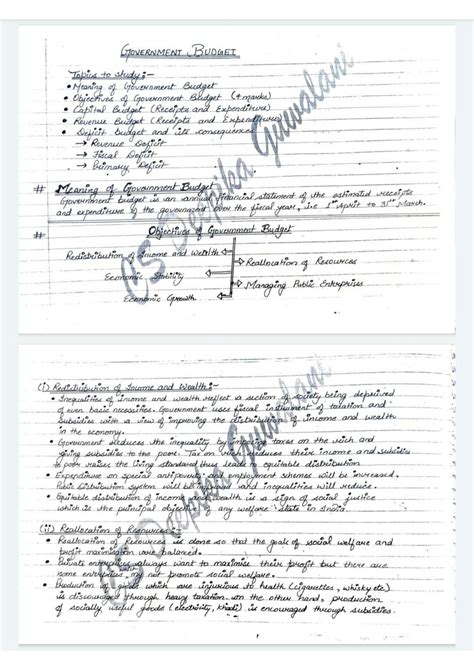 GOVERNMENT BUDGET
Topics to study:-
• Meaning of Government Budget
• Objectives of Government Budget (4 marks)
• Capital Budget (Receipts and Expenditure)
• Revenue Budget (Receipts and Expenditure)
• Deficit budget and its consequences
→ Revenue Deficit
→ Fiscal Deficit
→ Primary Deficit
# Meaning of Government Budget
Government budget is an annual financial statement of the estimated receipts
and expenditure of the government over the fiscal year, i.e 1st April to 31st March.
# Objectives of Government Budget
Redistribution of Income and Wealth
Reallocation of Resources
Economic Stability
Managing Public Enterprises
Economic Growth
CS Deepika Gunwalani
(i) Redistribution of Income and Wealth:-
• Inequalities of income and wealth reflect a section of society being deprived
of even basic necessities. Government uses fiscal instrument of taxation and
subsidies with a view of improving the distribution of income and wealth
in the economy.
• Government reduces the inequality by imposing taxes on the rich and
giving subsidies to the poor. Tax on reduces their income and subsidy
to poor raises the living standard thus leads to equitable distribution
• Expenditure on special anti poverty and employment schemes will be increased.
Public distribution system will and inequalities will reduce.
• Equitable distribution of income and wealth is a sign of social justice
which is the principal objective of any welfare state in India.
(ii) Reallocation of Resources:-
• Reallocation of Resources is done so that the goals of social welfare and
profit maximisation are balanced.
• Private enterprises always want to maximise their profit but there are
some enterprises not promote social welfare.
• Production of goods which are injurious to health (cigarettes, whisky etc)
is discouraged through heavy taxation. on the other hand, production
of socially useful goods (electricity, khadi) is encouraged through subsidies.
CS Deepika Gunwalani